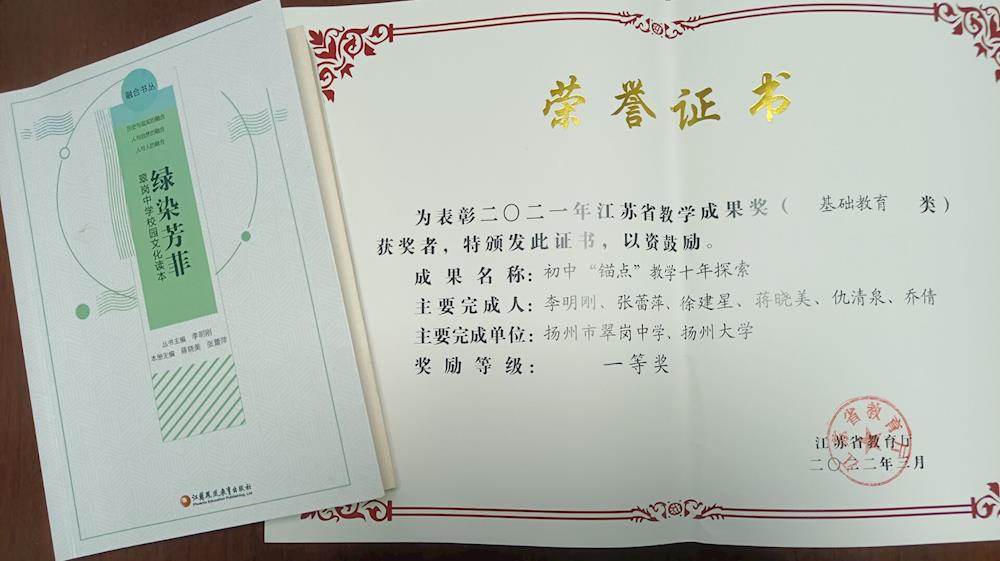 融合书丛
历史与现实的融合
人与自然的融合
人与人的融合
绿染芳菲
翠岗中学校园文化读本
丛书主编 李明刚
本册主编 蒋晓美 张蕾萍
江苏凤凰教育出版社
Phoenix Education Publishing, Ltd
荣誉证书
为表彰二〇二一年江苏省教学成果奖（ 基础教育 类）
获奖者，特颁发此证书，以资鼓励。
成果名称：初中“锚点”教学十年探索
主要完成人：李明刚、张蕾萍、徐建星、蒋晓美、仇清泉、乔倩
主要完成单位：扬州市翠岗中学、扬州大学
奖励等级： 一等奖
江苏省教育厅
二〇二二年三月